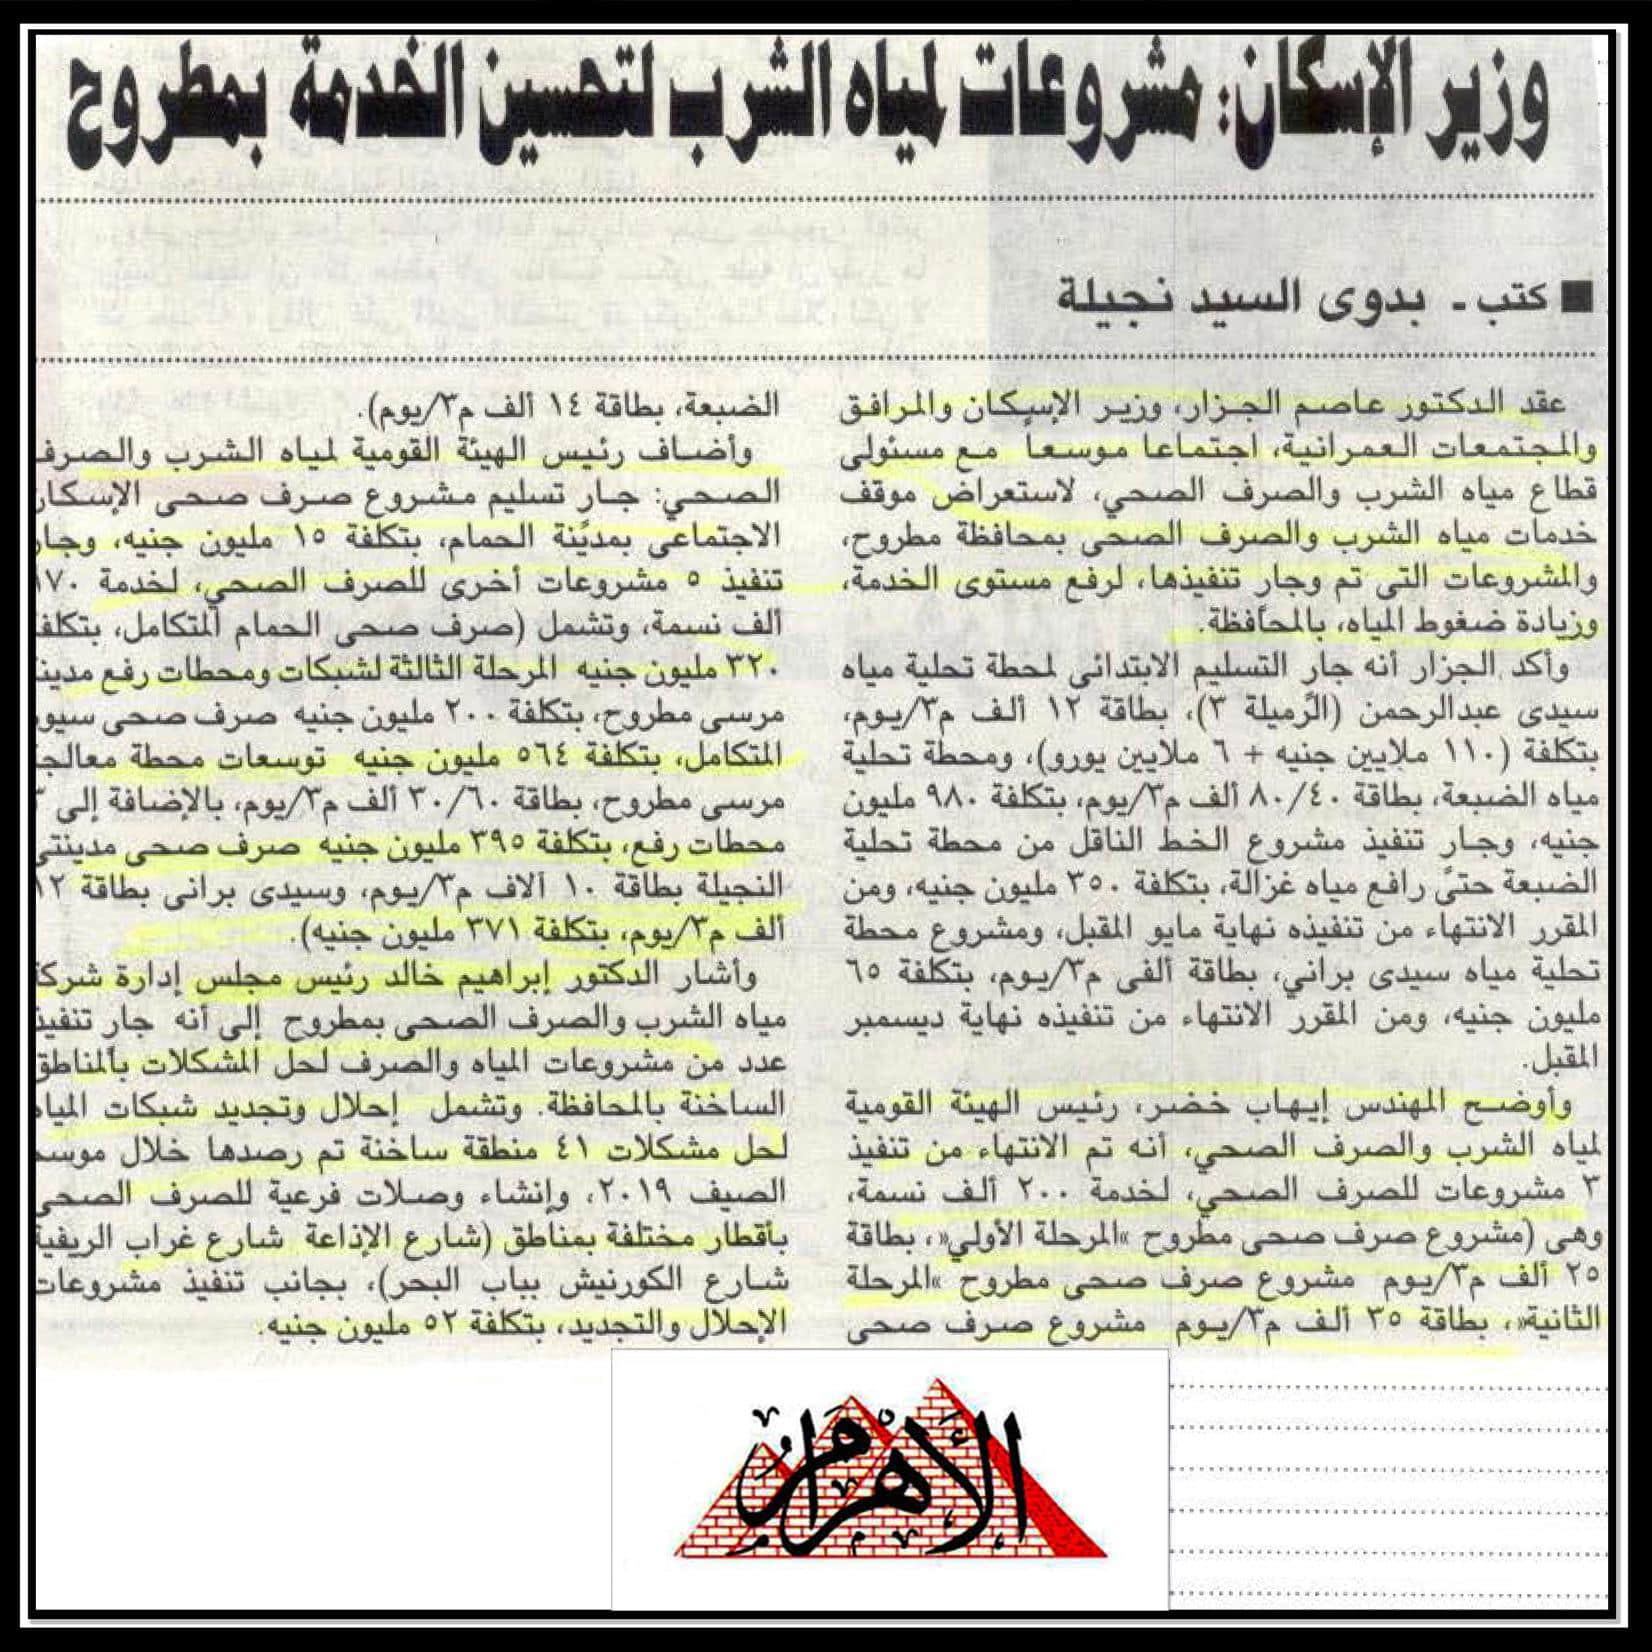 وزير الإسكان: مشروعات لمياه الشرب لتحسين الخدمة بمطروح
■ كتب ـ بدوى السيد نجيلة
عقد الدكتور عاصم الجزار، وزير الإسكان والمرافق
والمجتمعات العمرانية، اجتماعا موسعاً مع مسئولى
قطاع مياه الشرب والصرف الصحي، لاستعراض موقف
خدمات مياه الشرب والصرف الصحى بمحافظة مطروح،
والمشروعات التى تم وجارٍ تنفيذها، لرفع مستوى الخدمة،
وزيادة ضغوط المياه، بالمحافظة.
وأكد الجزار أنه جارٍ التسليم الابتدائى لمحطة تحلية مياه
سيدى عبدالرحمن (الرميلة ٣)، بطاقة ١٢ ألف م٣/يوم،
بتكلفة (١١٠ ملايين جنيه + ٦ ملايين يورو)، ومحطة تحلية
مياه الضبعة، بطاقة ٨٠/٤٠ ألف م٣/يوم، بتكلفة ٩٨٠ مليون
جنيه، وجارٍ تنفيذ مشروع الخط الناقل من محطة تحلية
الضبعة حتى رافع مياه غزالة، بتكلفة ٣٥٠ مليون جنيه، ومن
المقرر الانتهاء من تنفيذه نهاية مايو المقبل، ومشروع محطة
تحلية مياه سيدى براني، بطاقة ألفى م٣/يوم، بتكلفة ٦٥
مليون جنيه، ومن المقرر الانتهاء من تنفيذه نهاية ديسمبر
المقبل.
وأوضح المهندس إيهاب خضر، رئيس الهيئة القومية
لمياه الشرب والصرف الصحي، أنه تم الانتهاء من تنفيذ
٣ مشروعات للصرف الصحي، لخدمة ٢٠٠ ألف نسمة،
وهى (مشروع صرف صحى مطروح «المرحلة الأولي»، بطاقة
٢٥ ألف م٣/يوم مشروع صرف صحى مطروح «المرحلة
الثانية»، بطاقة ٣٥ ألف م٣/يوم مشروع صرف صحى
الضبعة، بطاقة ١٤ ألف م٣/يوم).
وأضاف رئيس الهيئة القومية لمياه الشرب والصرف
الصحي: جار تسليم مشروع صرف صحى الإسكان
الاجتماعى بمدينة الحمام، بتكلفة ١٥ مليون جنيه، وجار
تنفيذ ٥ مشروعات أخرى للصرف الصحي، لخدمة ١٧٠
ألف نسمة، وتشمل (صرف صحى الحمام المتكامل، بتكلفة
٣٢٠ مليون جنيه المرحلة الثالثة لشبكات ومحطات رفع مدينة
مرسى مطروح، بتكلفة ٢٠٠ مليون جنيه صرف صحى سيوة
المتكامل، بتكلفة ٥٦٤ مليون جنيه توسعات محطة معالجة
مرسى مطروح، بطاقة ٣٠/٦٠ ألف م٣/يوم، بالإضافة إلى ٣
محطات رفع، بتكلفة ٣٩٥ مليون جنيه صرف صحى مدينتى
النجيلة بطاقة ١٠ آلاف م٣/يوم، وسيدى برانى بطاقة ١٢
ألف م٣/يوم، بتكلفة ٣٧١ مليون جنيه).
وأشار الدكتور إبراهيم خالد رئيس مجلس إدارة شركة
مياه الشرب والصرف الصحى بمطروح إلى أنه جارٍ تنفيذ
عدد من مشروعات المياه والصرف لحل المشكلات بالمناطق
الساخنة بالمحافظة. وتشمل إحلال وتجديد شبكات المياه
لحل مشكلات ٤١ منطقة ساخنة تم رصدها خلال موسم
الصيف ٢٠١٩، وإنشاء وصلات فرعية للصرف الصحى
بأقطار مختلفة بمناطق (شارع الإذاعة شارع غراب الريفية
شارع الكورنيش بباب البحر)، بجانب تنفيذ مشروعات
الإحلال والتجديد، بتكلفة ٥٢ مليون جنيه.
الأهرام